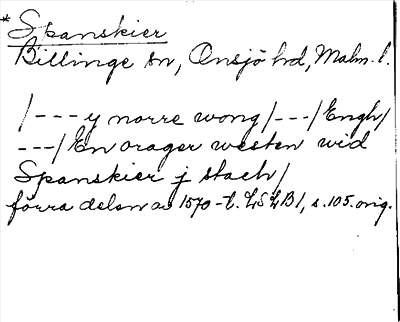 * Spanskier
Billinge sn, Onsjö hd, Malm. l.
/---y norre wong/---/Engh/
---/En orager westen wid
Spanskier j stach/
förra delen av 1570-t. LSLB1, s. 105. orig.